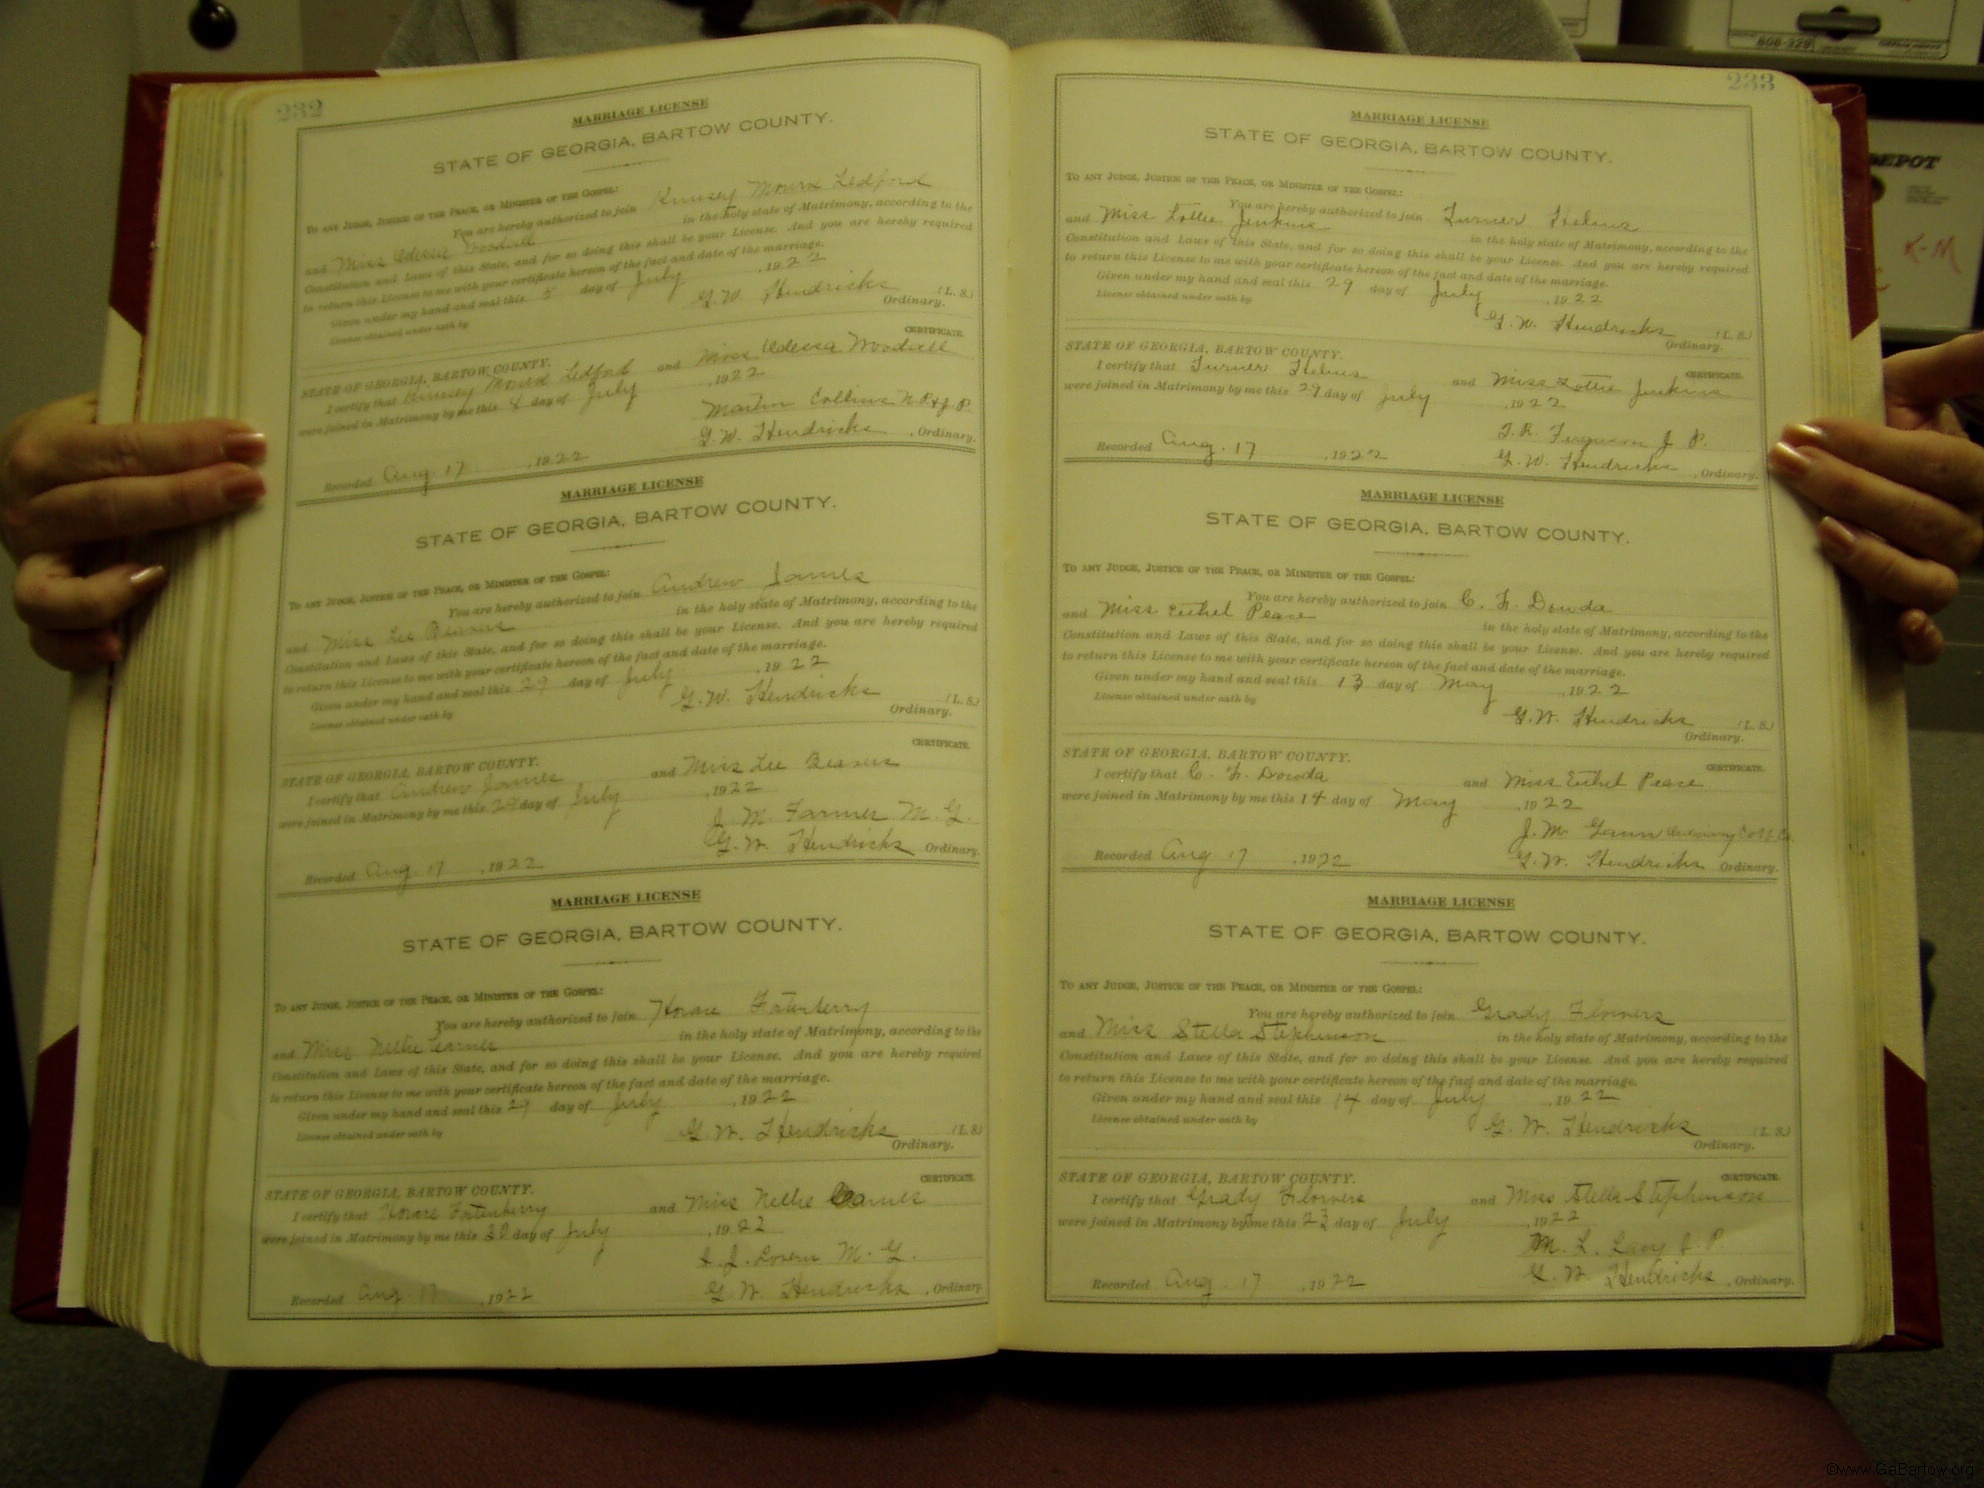 232
MARRIAGE LICENSE
STATE OF GEORGIA, BARTOW COUNTY.
TO ANY JUDGE, JUSTICE OF THE PEACE, OR MINISTER OF THE GOSPEL:
You are hereby authorized to join Ledford
and Miss Odessa Woodall in the holy state of Matrimony, according to the
Constitution and Laws of this State, and for so doing this shall be your License. And you are hereby required
to return this License to me with your certificate hereon of the fact and date of the marriage.
Given under my hand and seal this 5 day of July , 1922
License obtained under oath by
G. W. Hendricks (L. S.)
Ordinary.
CERTIFICATE.
STATE OF GEORGIA, BARTOW COUNTY.
I certify that Ledford and Miss Odessa Woodall
were joined in Matrimony by me this 8 day of July , 1922
Martin Collins N. P. & J. P.
Recorded Aug. 17 , 1922 G. W. Hendricks , Ordinary.
MARRIAGE LICENSE
STATE OF GEORGIA, BARTOW COUNTY.
TO ANY JUDGE, JUSTICE OF THE PEACE, OR MINISTER OF THE GOSPEL:
You are hereby authorized to join Andrew James
and Miss Lee Beavers in the holy state of Matrimony, according to the
Constitution and Laws of this State, and for so doing this shall be your License. And you are hereby required
to return this License to me with your certificate hereon of the fact and date of the marriage.
Given under my hand and seal this 29 day of July , 1922
License obtained under oath by
G. W. Hendricks (L. S.)
Ordinary.
CERTIFICATE.
STATE OF GEORGIA, BARTOW COUNTY.
I certify that Andrew James and Miss Lee Beavers
were joined in Matrimony by me this 29 day of July , 1922
J. M. Farmer M. G.
Recorded Aug. 17 , 1922 G. W. Hendricks Ordinary.
MARRIAGE LICENSE
STATE OF GEORGIA, BARTOW COUNTY.
TO ANY JUDGE, JUSTICE OF THE PEACE, OR MINISTER OF THE GOSPEL:
You are hereby authorized to join Horace Fatenberry
and Miss Nellie in the holy state of Matrimony, according to the
Constitution and Laws of this State, and for so doing this shall be your License. And you are hereby required
to return this License to me with your certificate hereon of the fact and date of the marriage.
Given under my hand and seal this 29 day of July , 1922
License obtained under oath by
G. W. Hendricks (L. S.)
Ordinary.
CERTIFICATE.
STATE OF GEORGIA, BARTOW COUNTY.
I certify that Horace Fatenberry and Miss Nellie
were joined in Matrimony by me this 30 day of July , 1922
M. G.
Recorded Aug. 17 , 1922 G. W. Hendricks , Ordinary.
233
MARRIAGE LICENSE
STATE OF GEORGIA, BARTOW COUNTY.
TO ANY JUDGE, JUSTICE OF THE PEACE, OR MINISTER OF THE GOSPEL:
You are hereby authorized to join Turner Helms
and Miss Lottie Jenkins in the holy state of Matrimony, according to the
Constitution and Laws of this State, and for so doing this shall be your License. And you are hereby required
to return this License to me with your certificate hereon of the fact and date of the marriage.
Given under my hand and seal this 29 day of July , 1922
License obtained under oath by
G. W. Hendricks (L. S.)
Ordinary.
CERTIFICATE.
STATE OF GEORGIA, BARTOW COUNTY.
I certify that Turner Helms and Miss Lottie Jenkins
were joined in Matrimony by me this 29 day of July , 1922
T. R. Ferguson J. P.
Recorded Aug. 17 , 1922 G. W. Hendricks , Ordinary.
MARRIAGE LICENSE
STATE OF GEORGIA, BARTOW COUNTY.
TO ANY JUDGE, JUSTICE OF THE PEACE, OR MINISTER OF THE GOSPEL:
You are hereby authorized to join C. H. Dowda
and Miss Euthel Peace in the holy state of Matrimony, according to the
Constitution and Laws of this State, and for so doing this shall be your License. And you are hereby required
to return this License to me with your certificate hereon of the fact and date of the marriage.
Given under my hand and seal this 13 day of May , 1922
License obtained under oath by
G. W. Hendricks (L. S.)
Ordinary.
CERTIFICATE.
STATE OF GEORGIA, BARTOW COUNTY.
I certify that C. H. Dowda and Miss Euthel Peace
were joined in Matrimony by me this 14 day of May , 1922
J. M. Gann
Recorded Aug 17 , 1922 G. W. Hendricks Ordinary.
MARRIAGE LICENSE
STATE OF GEORGIA, BARTOW COUNTY.
TO ANY JUDGE, JUSTICE OF THE PEACE, OR MINISTER OF THE GOSPEL:
You are hereby authorized to join Grady Flowers
and Miss Stella Stephenson in the holy state of Matrimony, according to the
Constitution and Laws of this State, and for so doing this shall be your License. And you are hereby required
to return this License to me with your certificate hereon of the fact and date of the marriage.
Given under my hand and seal this 14 day of July , 1922
License obtained under oath by
G. W. Hendricks (L. S.)
Ordinary.
CERTIFICATE.
STATE OF GEORGIA, BARTOW COUNTY.
I certify that Grady Flowers and Miss Stella Stephenson
were joined in Matrimony by me this 23 day of July , 1922
M. L. Lacy J. P.
Recorded Aug. 17 , 1922 G. W. Hendricks , Ordinary.
DEPOT
K-M
©www.GaBartow.org